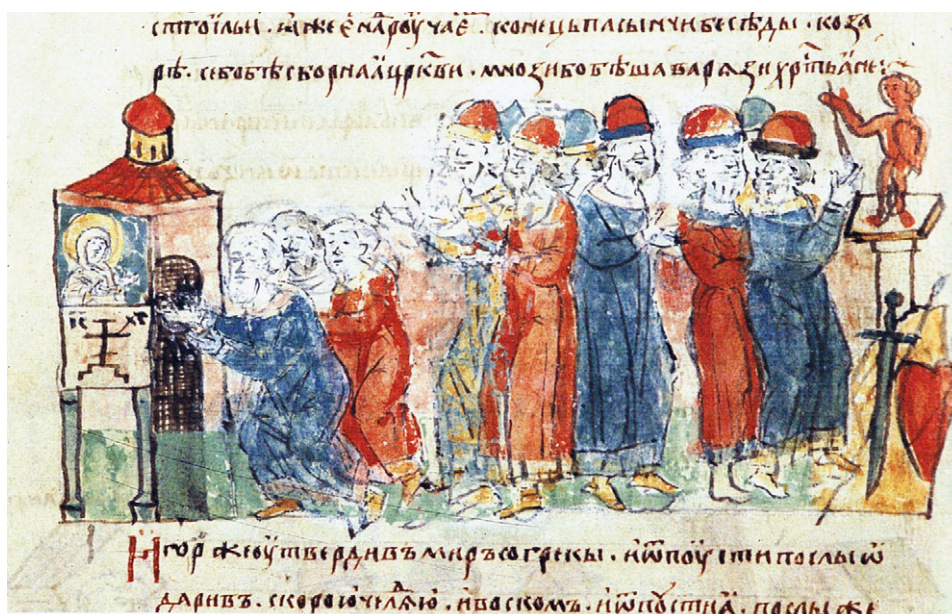 стго ильи · ꙗже є наⷣ роучаеⷨ · конець пасынчи бесѣды · коза
рѣ · се бо бѣ сборнаꙗ црк҃ви · мнози бо бѣша варѧзи хрⷭтьꙗне :
іс хс
Игорь же оутвердивъ миръ со грекы · и ѿпоусти послы ѡ
даривъ · скорою челѧⷣю · и воскомъ · и ѿпоусти ꙗ · послы же